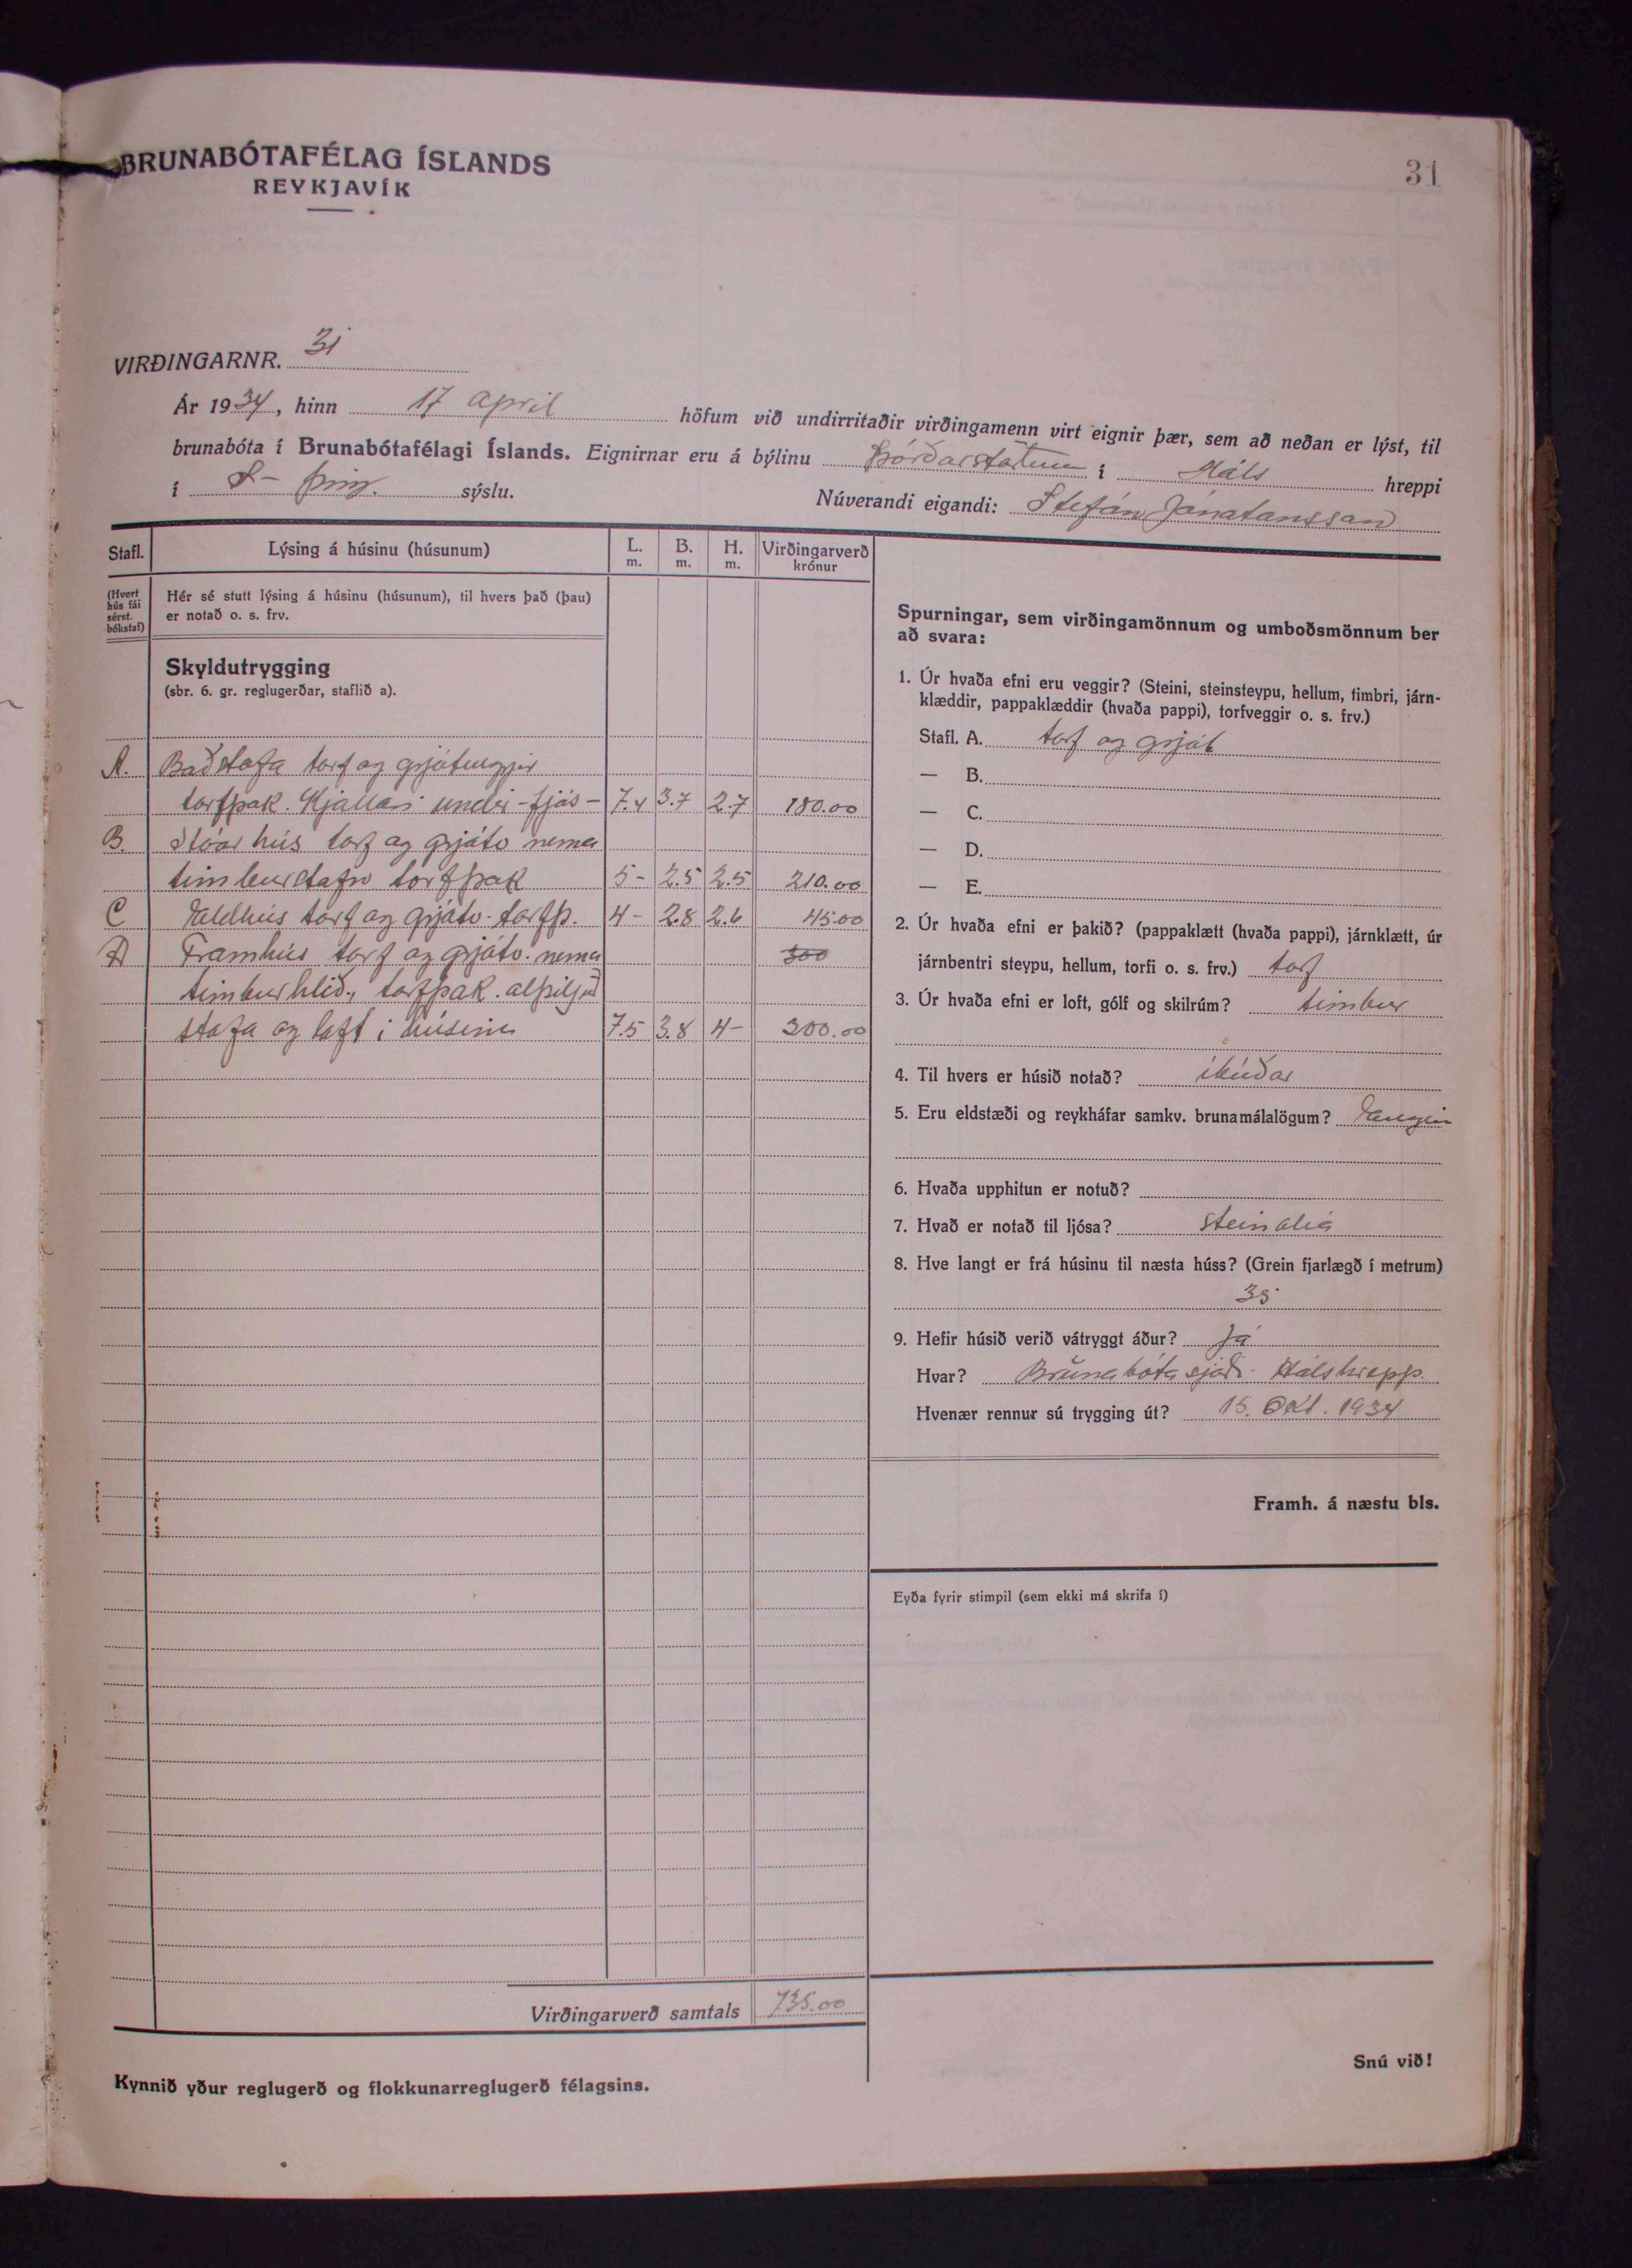 BRUNABÓTAFÉLAG ÍSLANDS
REYKJAVÍK
31
VIRÐINGARNR. 31
Ár 1934, hinn 17 apríl höfum við undirritaðir virðingamenn virt eignir þær, sem að neðan er lýst, til
brunabóta í Brunabótafélagi Íslands. Eignirnar eru á býlinu Þórðarstöðum í Háls hreppi
í S- Þing. sýslu. Núverandi eigandi: Stefán Jónatansson
Stafl. Lýsing á húsinu (húsunum) L. m. B. m. H. m. Virðingarverð krónur
(Hvert hús fái sérst. bókstaf)
Hér sé stutt lýsing á húsinu (húsunum), til hvers það (þau)
er notað o. s. frv.
Skyldutrygging
(sbr. 6. gr. reglugerðar, staflið a).
A. Baðstofa torf og grjótveggir
torfþak. Kjallari undir - fjós - 7.4 3.7 2.7 180.00
B. Stóar hús torf og grjótv nema
timburstafn torfþak 5- 2.5 2.5 210.00
C Eldhús torf og grjótv. torfþ. 4- 2.8 2.6 45.00
D Framhús torf og grjótv. nema 300
timburhlið, torfþak. alþiljuð
stofa og loft í húsinu 7.5 3.8 4- 300.00
Virðingarverð samtals 735.00
Kynnið yður reglugerð og flokkunarreglugerð félagsins.
Spurningar, sem virðingamönnum og umboðsmönnum ber
að svara:
1. Úr hvaða efni eru veggir? (Steini, steinsteypu, hellum, timbri, járn-
klæddir, pappaklæddir (hvaða pappi), torfveggir o. s. frv.)
Stafl. A. torf og grjót
— B.
— C.
— D.
— E.
2. Úr hvaða efni er þakið? (pappaklætt (hvaða pappi), járnklætt, úr
járnbentri steypu, hellum, torfi o. s. frv.) torf
3. Úr hvaða efni er loft, gólf og skilrúm? timbur
4. Til hvers er húsið notað? íbúðar
5. Eru eldstæði og reykháfar samkv. brunamálalögum? Engin
6. Hvaða upphitun er notuð?
7. Hvað er notað til ljósa? steinolía
8. Hve langt er frá húsinu til næsta húss? (Grein fjarlægð í metrum)
35
9. Hefir húsið verið vátryggt áður? Já
Hvar? Brunabótasjóði Hálshrepp.
Hvenær rennur sú trygging út? 15. Okt. 1934
Framh. á næstu bls.
Eyða fyrir stimpil (sem ekki má skrifa í)
Snú við!